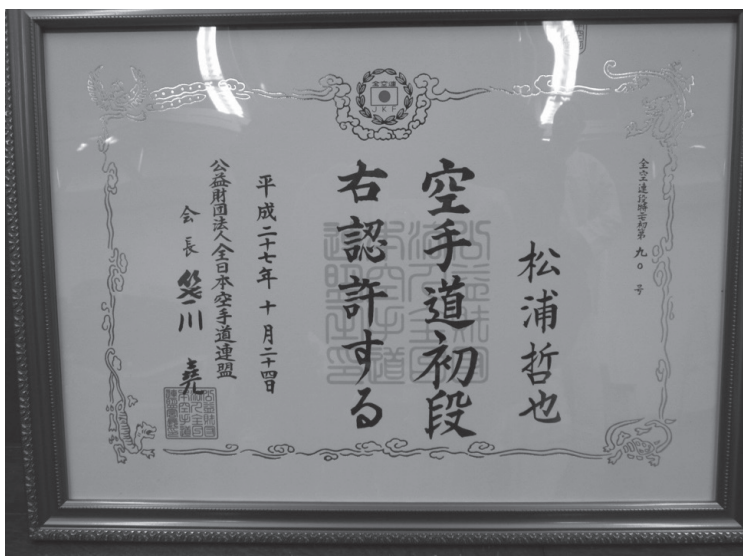 全空連
JKF
松浦哲也
空手道初段
右認許する
平成二十七年十月二十四日
公益財団法人全日本空手道連盟
会長 笹川堯
九〇号